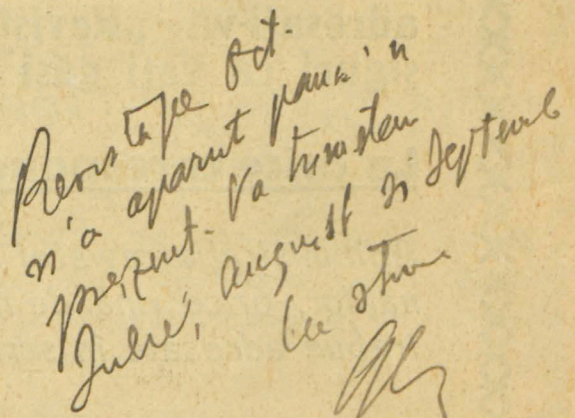 Revista pe Oct.
n'a aparut pana'n
prezent. Va trimitem
Iulie, August si Septemb
Cu stima